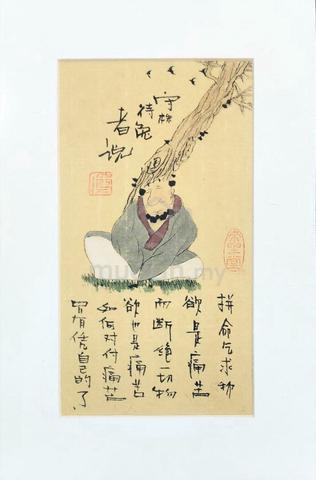 守株
待兔
者说
拼命乞求物
欲是痛苦
而断绝一切物
欲也是痛苦
如何对付痛苦
有自己的了